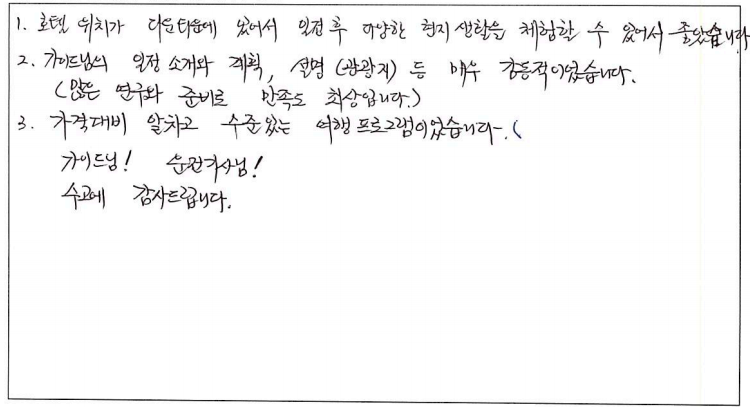 1. 호텔 위치가 다운타운에 있어서 일정 후 다양한 현지 생활을 체험할 수 있어서 좋았습니다
2. 가이드님의 일정 소개와 계획, 설명 (관광지) 등 매우 감동적이었습니다.
(많은 연구와 준비로 만족도 최상입니다.)
3. 가격대비 알차고 수준있는 여행 프로그램이었습니다. (
가이드님! 운전기사님!
수고에 감사드립니다.